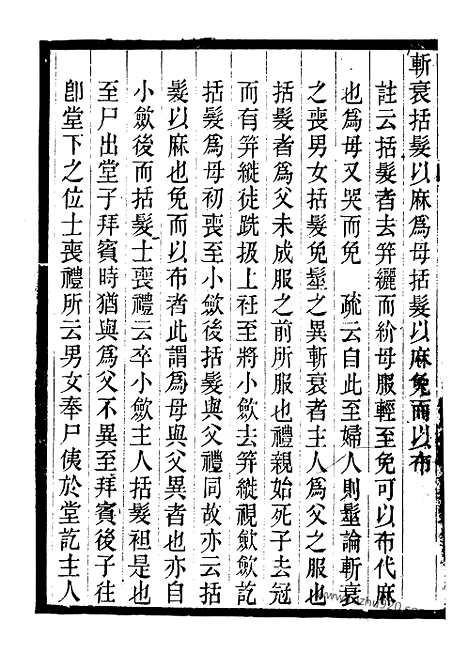 斬衰括髮以麻爲母括髮以麻免而以布
註云括髮者去筓纚而紒母服輕至免可以布代麻
也爲母又哭而免　疏云自此至婦人則髽論斬衰
之喪男女括髮免髽之異斬衰者主人爲父之服也
括髮者爲父未成服之前所服也禮親始死子去冠
而有筓縰徒跣扱上衽至將小斂去筓縰視斂斂訖
括髮爲母初喪至小斂後括髮與父禮同故亦云括
髮以麻也免而以布者此謂爲母與父異者也亦自
小斂後而括髮士喪禮云卒小斂主人括髮袒是也
至尸出堂子拜賓時猶與爲父不異至拜賓後子往
卽堂下之位士喪禮所云男女奉尸侇於堂訖主人